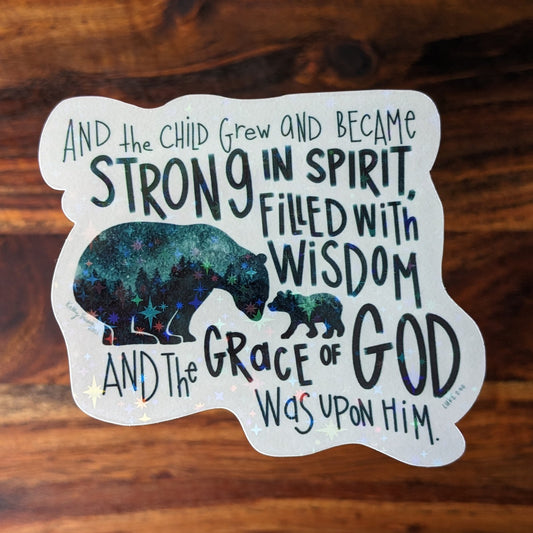 AND the CHILD Grew aND BECAME
STRONg IN SPIRIT,
FiLLED WiTh
WiSDOM
AND The GRaCE OF GOD
Was UPON HiM.